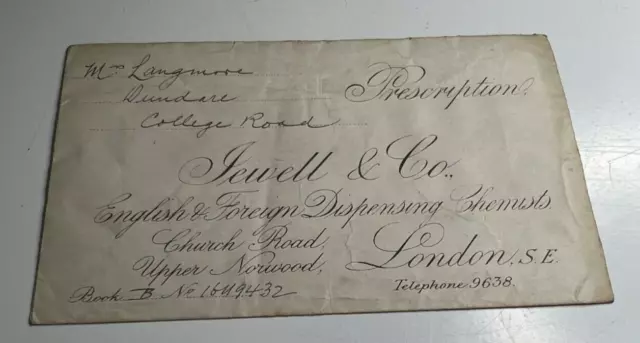 Mrs Langmore
Dundare
College Road
Prescription.
Jewell & Co.,
English & Foreign Dispensing Chemists
Church Road,
Upper Norwood,
London, S.E.
Book B No 1649432
Telephone 9638.